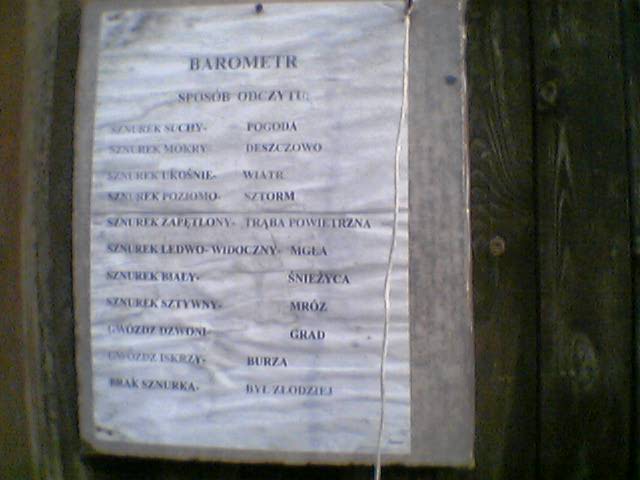 BAROMETR
SPOSÓB ODCZYTU:
SZNUREK SUCHY- POGODA
SZNUREK MOKRY- DESZCZOWO
SZNUREK UKOŚNIE- WIATR
SZNUREK POZIOMO- SZTORM
SZNUREK ZAPĘTLONY- TRĄBA POWIETRZNA
SZNUREK LEDWO-WIDOCZNY- MGŁA
SZNUREK BIAŁY- ŚNIEŻYCA
SZNUREK SZTYWNY- MRÓZ
GWÓŹDŹ DZWONI- GRAD
GWÓŹDŹ ISKRZY- BURZA
BRAK SZNURKA- BYŁ ZŁODZIEJ